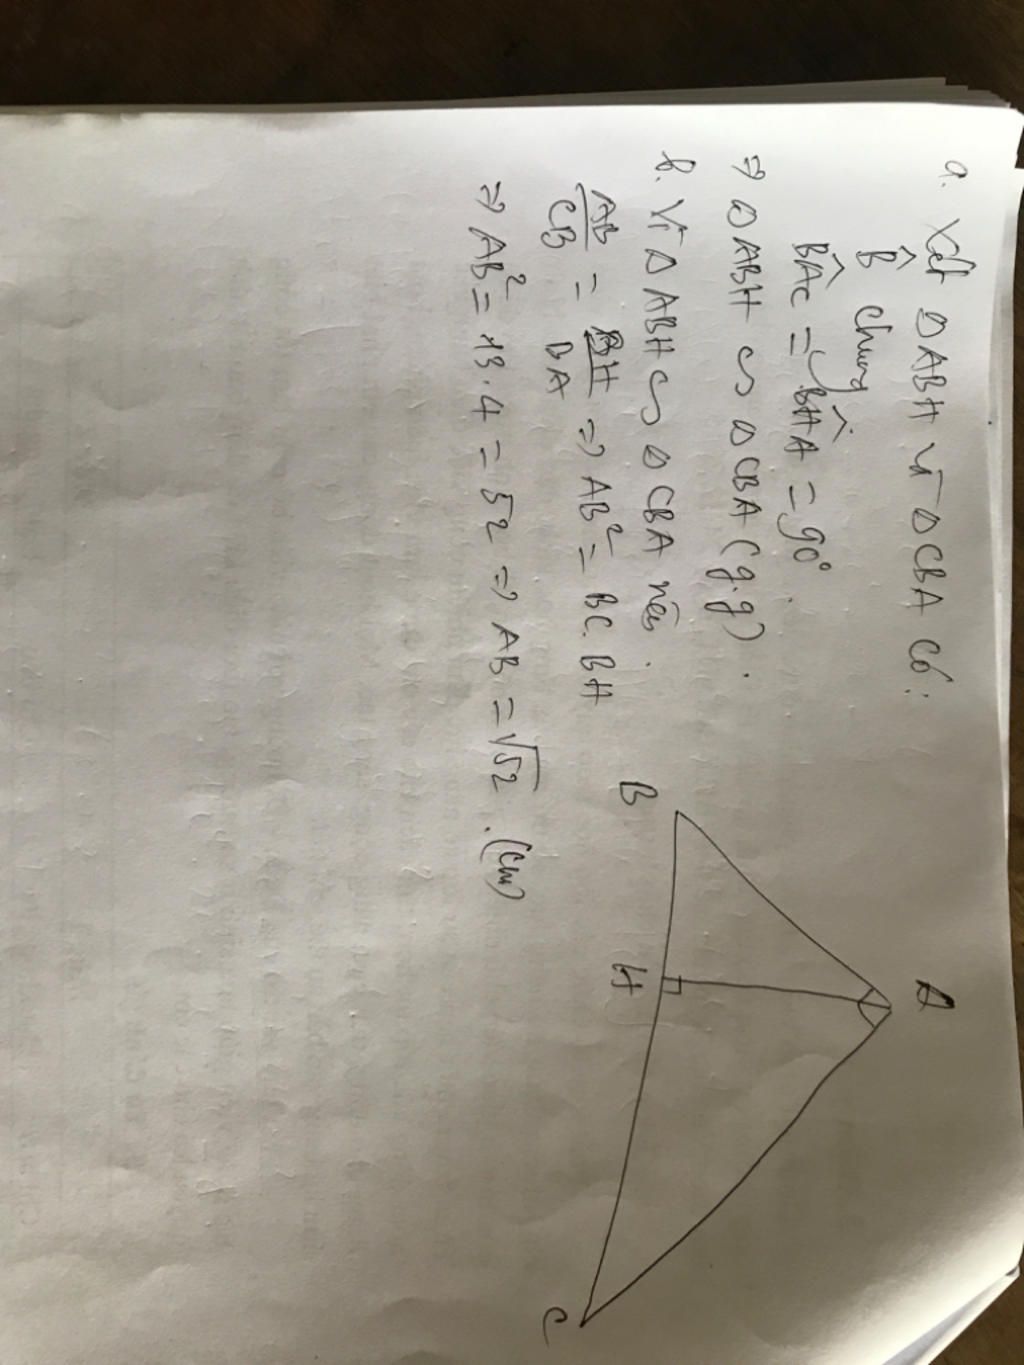 a. Xét ΔABH và ΔCBA có:
B̂ chung
BÂC = BĤA = 90°.
⇒ ΔABH ∽ ΔCBA (g.g).
b. Vì ΔABH ∽ ΔCBA nên
AB/CB = BH/BA ⇒ AB² = BC.BH
⇒ AB² = 13.4 = 52 ⇒ AB = √52 . (cm)
A
B
H
C